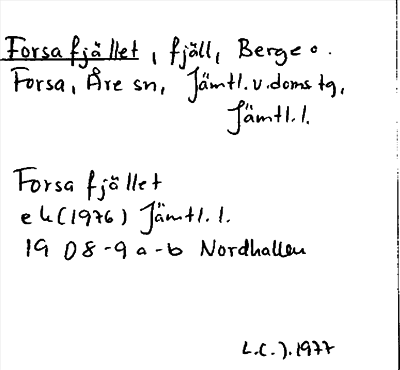 Forsafjället, fjäll, Berge o.
Forsa, Åre sn, Jämtl.v.doms tg,
Jämtl.l.
Forsafjället
ek (1976) Jämtl.l.
19 D 8-9 a-b Nordhallen
L.C.J. 1977